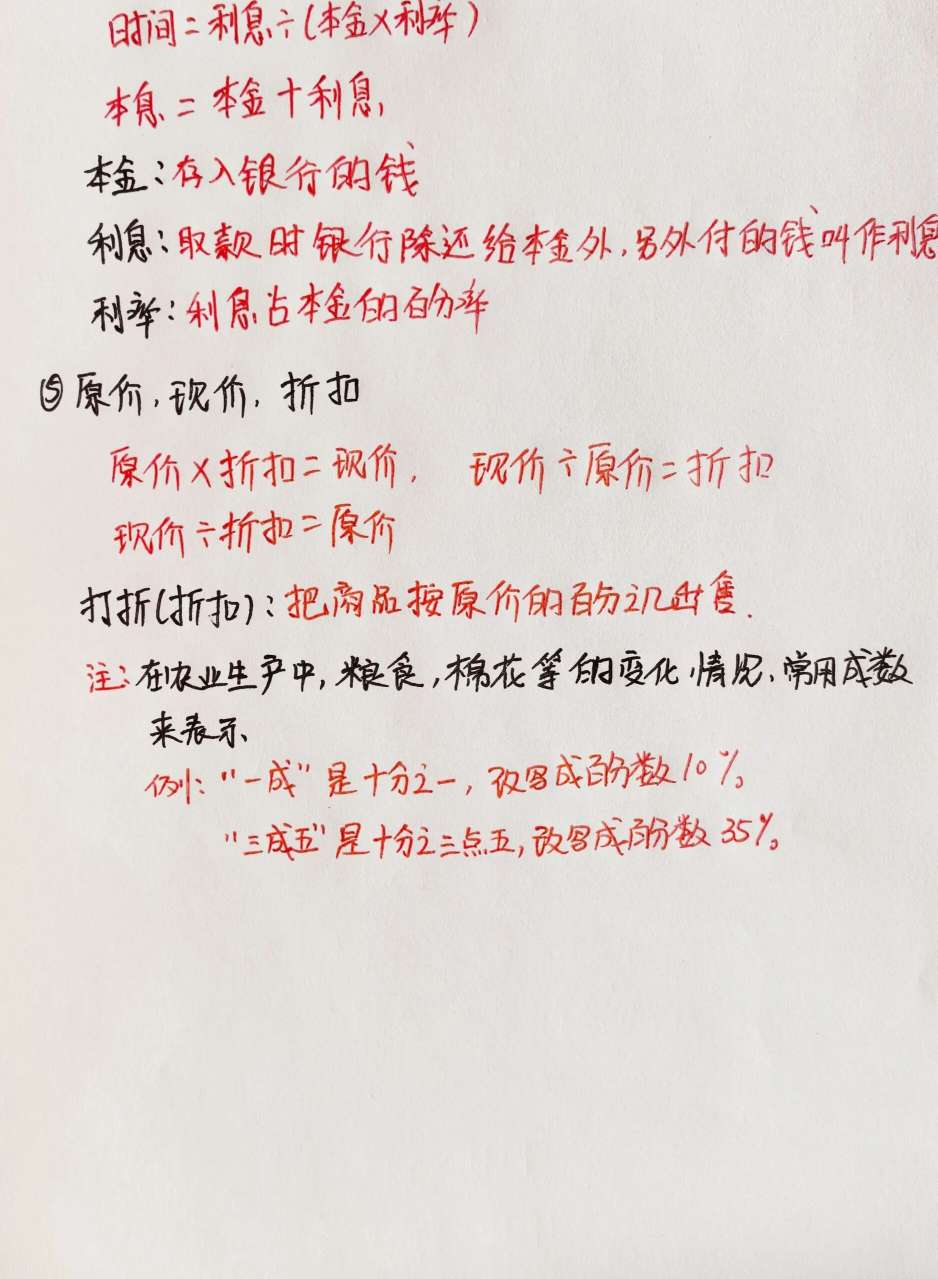 时间=利息÷(本金×利率)
本息=本金+利息,
本金:存入银行的钱
利息:取款时银行除还给本金外,另外付的钱叫作利息
利率:利息占本金的百分率
⑤原价,现价,折扣
原价×折扣=现价, 现价÷原价=折扣
现价÷折扣=原价
打折(折扣):把商品按原价的百分之几出售.
注:在农业生产中,粮食,棉花等的变化情况,常用成数
来表示、
例:"一成"是十分之一,改写成百分数10%。
"三成五"是十分之三点五,改写成百分数35%。